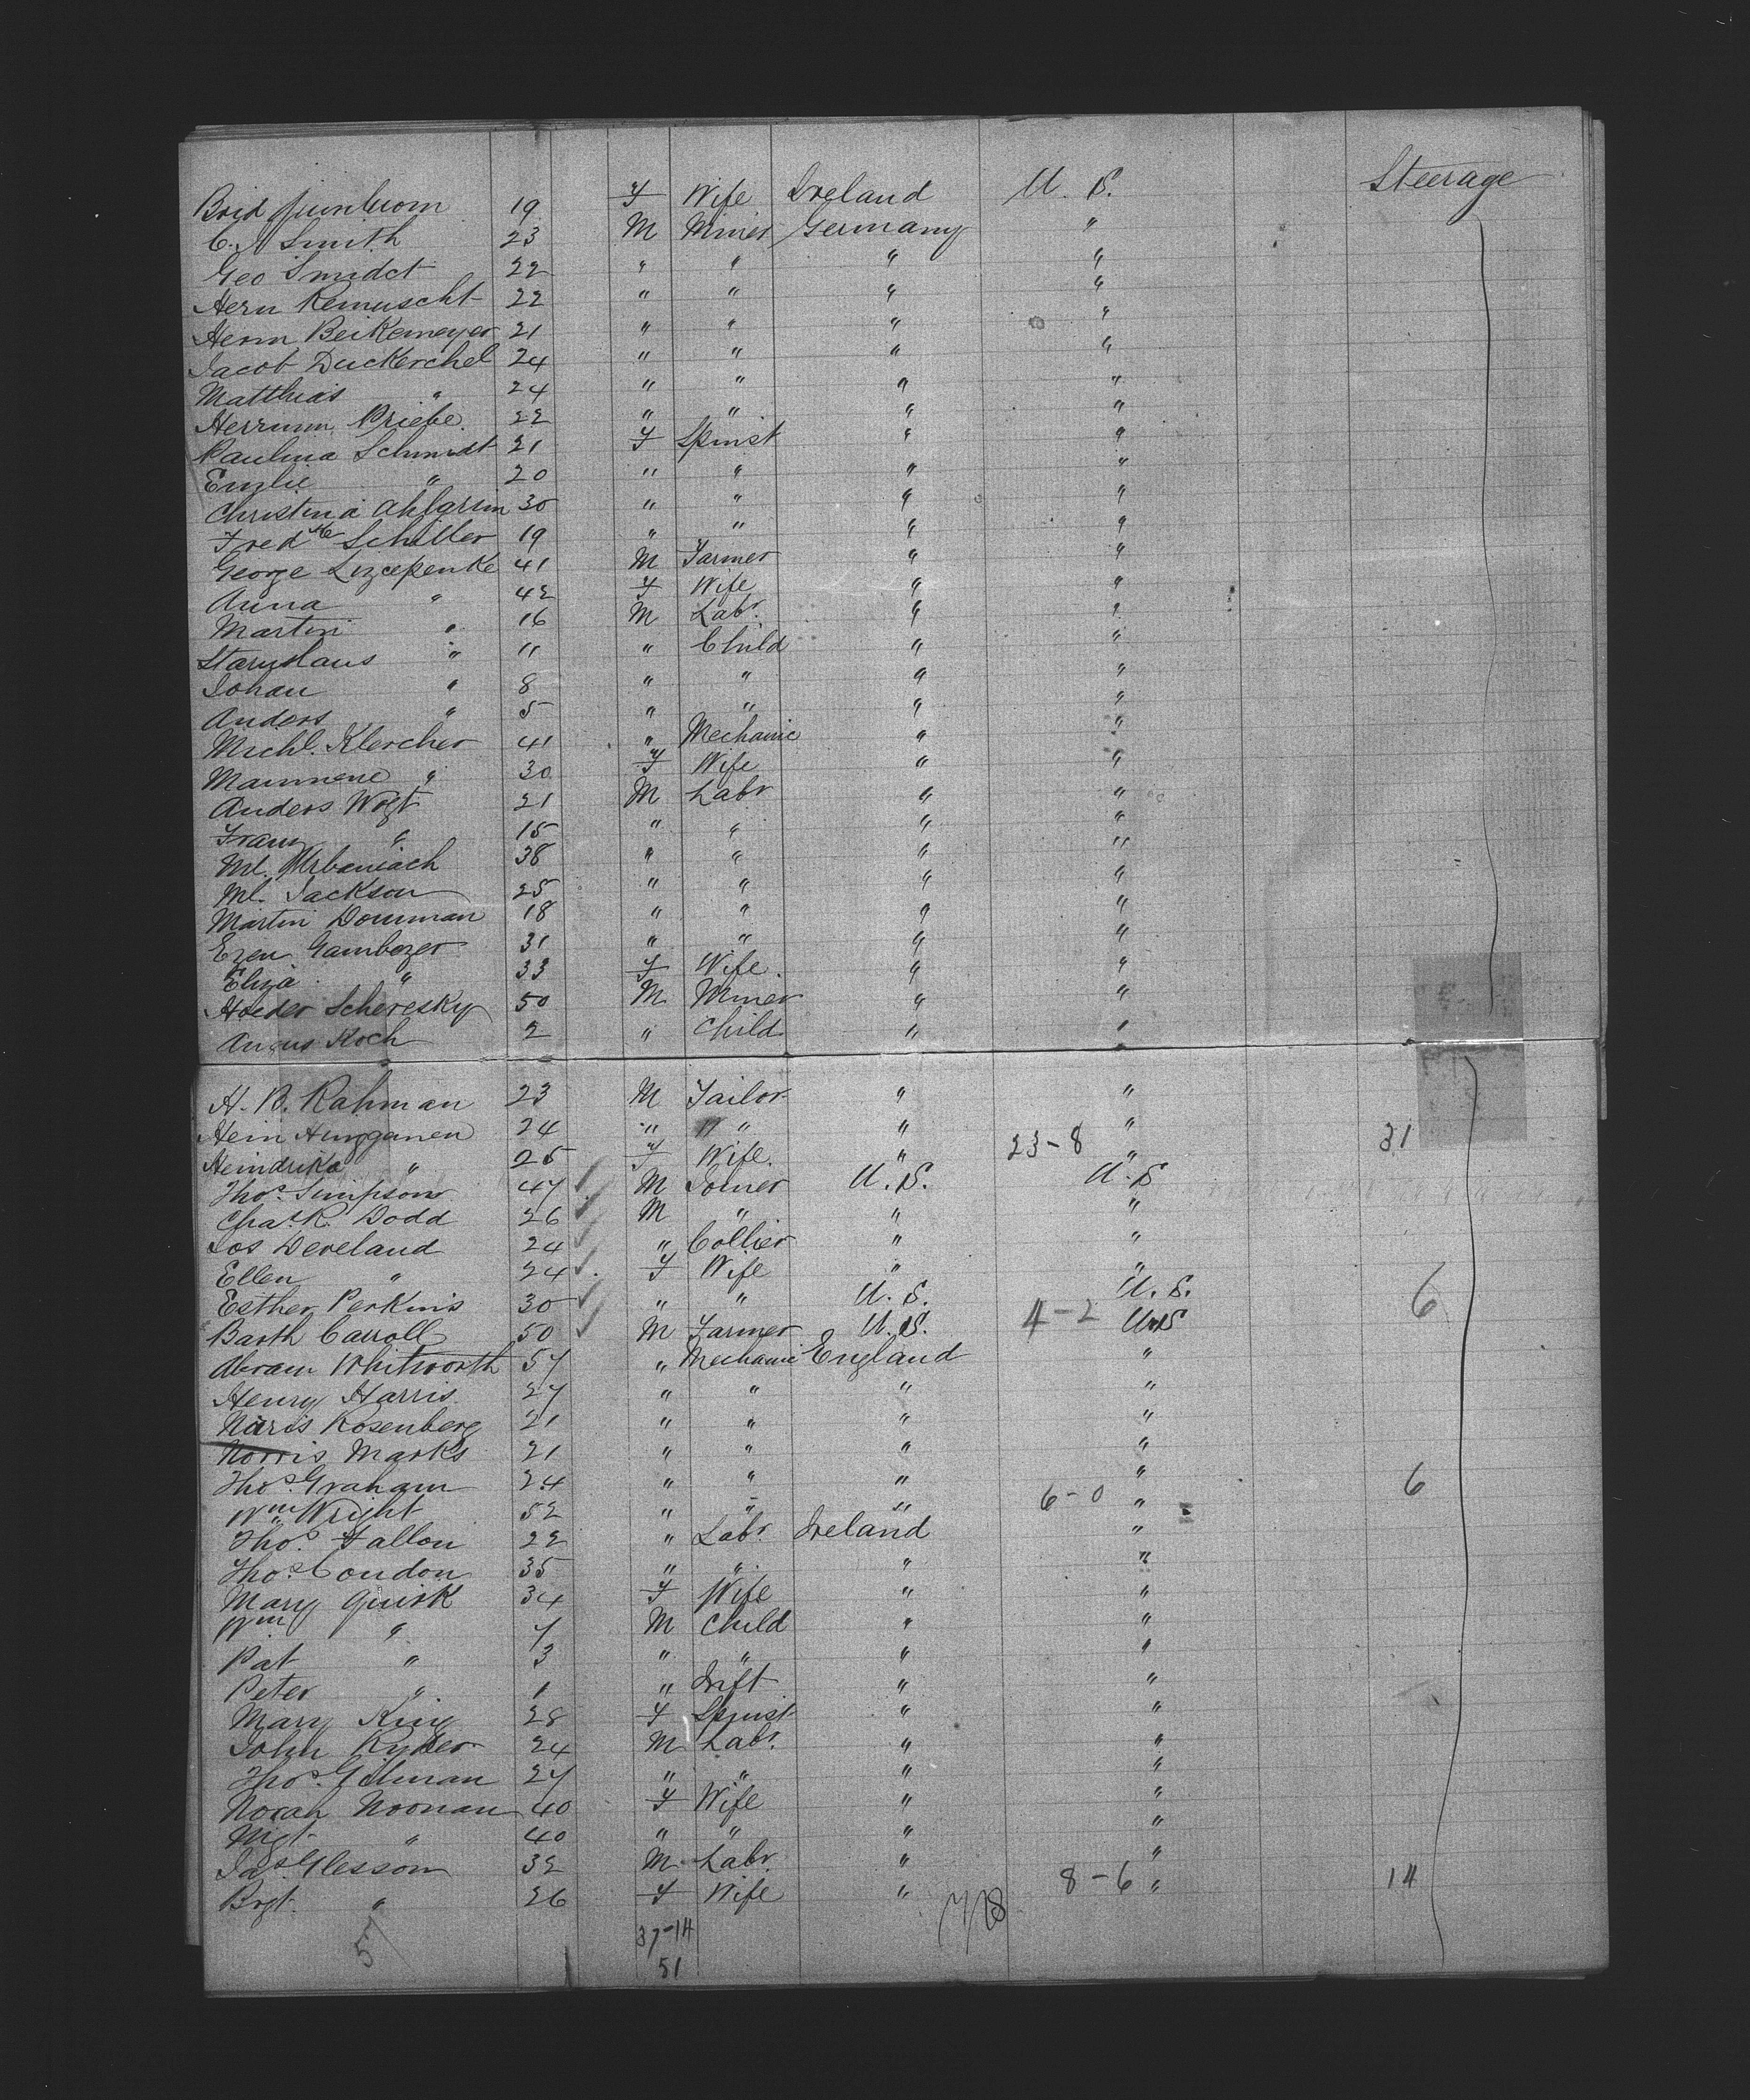 Steerage
Brid Quinlivom 19 F Wife Ireland U. S.
C. A Smith 23 M Miner Germany "
Geo Smidct 22 " " " "
Hern Remuscht 22 " " " "
Herm Beikemeyer 21 " " " "
Jacob Duckerchel 24 " " " "
Matthias " 24 " " " "
Herrmm Priebe 22 " " " "
Paulina Schmidt 21 F Spinst " "
Emilie " 20 " " " "
Christina Ahlgrim 30 " " " "
Fredke Schiller 19 " " " "
George Lizcepenke 41 M Farmer " "
Anna " 42 F Wife " "
Martin " 16 M Labr. " "
Stanislaus " 11 " Child " "
Johan " 8 " " " "
Anders " 5 " " " "
Michl. Klercher 41 " Mechanic " "
" 30 F Wife " "
Anders Wogt 21 M Labr " "
Franz " 15 " " " "
Ml. Urbaniach 38 " " " "
Ml. Jackson 25 " " " "
Martin Dowman 18 " " " "
Ezen Gambozer 31 " " " "
Eliza " 33 F Wife. " "
Scheresky 50 M Miner " "
Angus Koch 2 " Child " "
H. B. Rahman 23 M Tailor " "
Hein 24 " " " "
Heindrika " 25 F Wife. " 23-8 " 31
Thos. Simpson 47 M Joiner U. S. U. S
Chas. R. Dodd 26 M " " "
Jos Develand 24 " Collier " "
Ellen " 24 F Wife " "
Esther Perkins 30 " " U. S. U. S.
Barth Carroll 50 M Farmer U. S. 4-2 U.S 6
Abram Whitworth 57 " Mechanic England "
Henry Harris 27 " " " "
Noris Rosenberg 21 " " " "
Norris Marks 21 " " " "
Thos. Graham 24 " " " "
Wm Wright 52 " " " 6-0 " 6
Thos. Fallon 22 " Labr Ireland "
Thos. Condon 35 " " " "
Mary Quirk 34 F Wife " "
Wm " 7 M Child " "
Pat " 3 " " " "
Peter " 1 " Inft " "
Mary King 28 F Spinst " "
John Ryder 24 M Labr. " "
Thos. Gilman 27 " " " "
Norah Noonan 40 F Wife " "
Mgt " 40 " " " "
Jas Glesson 32 M Labr. " "
Brgt. " 26 F Wife " 8-6 " 14
37-14
51